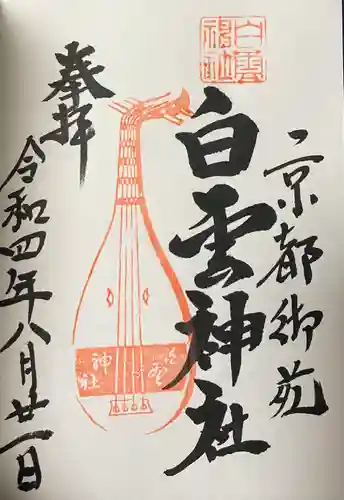 京都御苑
白雲神社
白雲神社
奉拝
白雲神社
令和四年八月廿一日